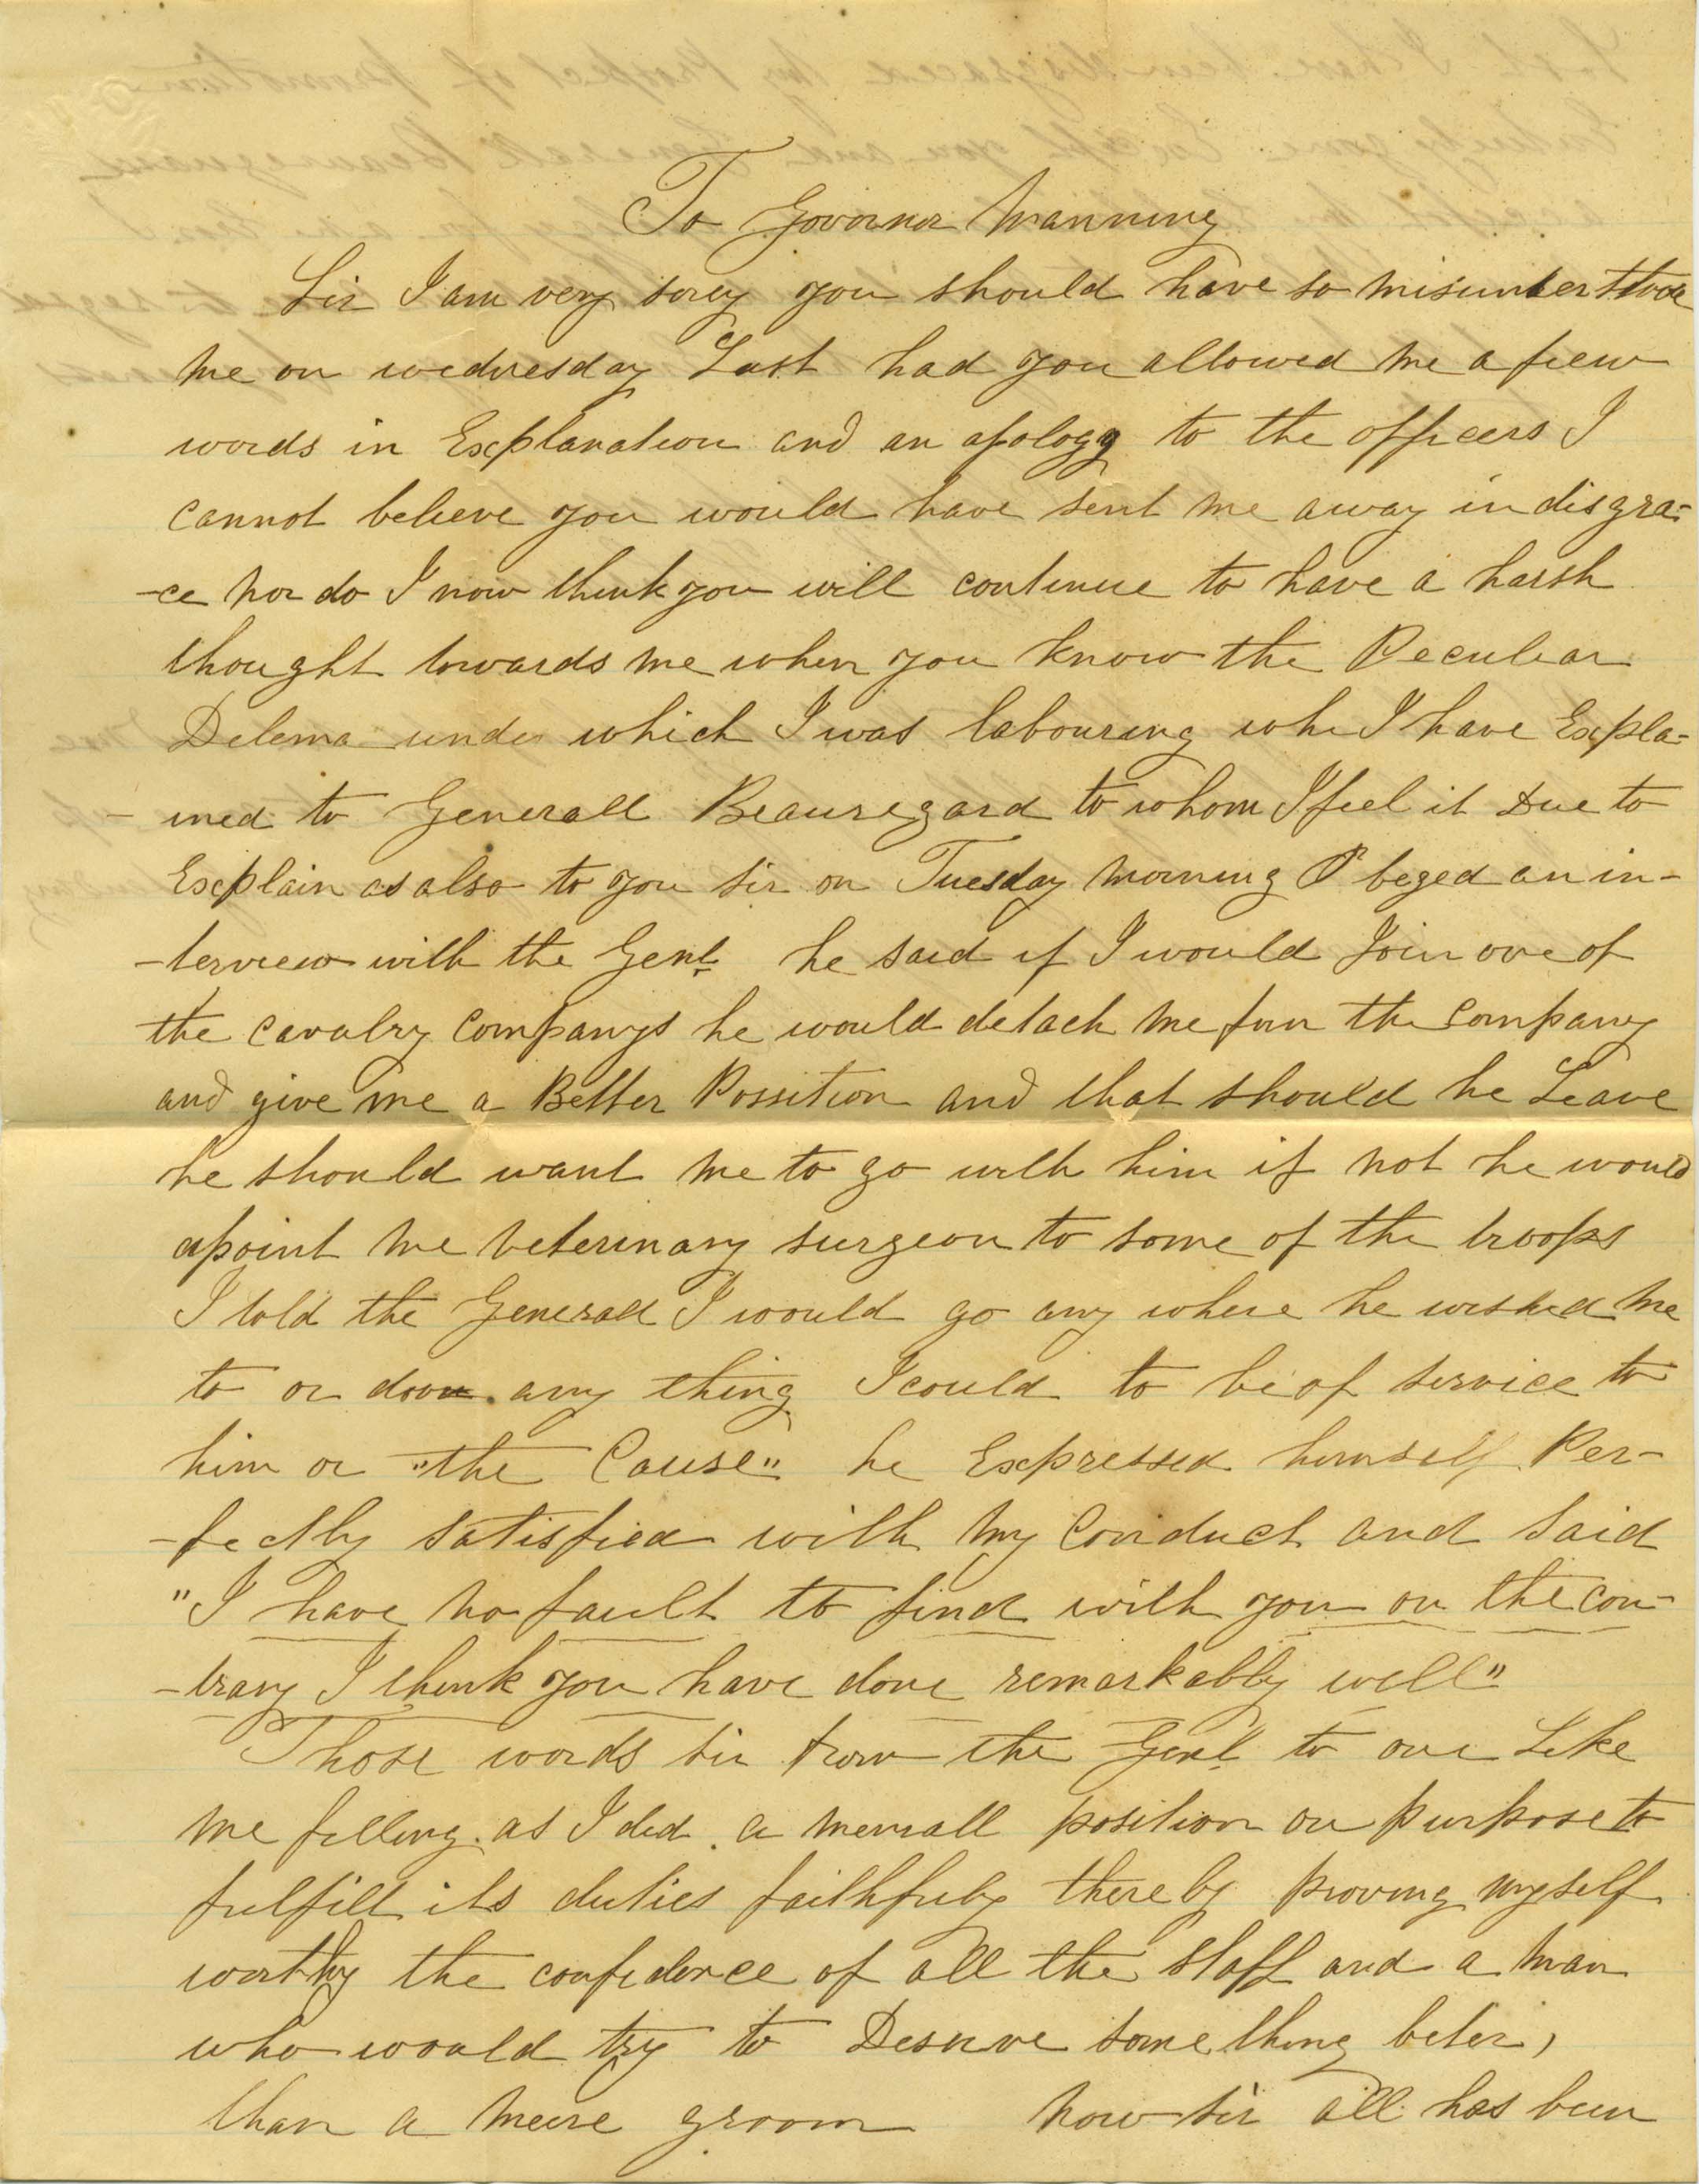 To Governor Manning
Sir I am very sorey you should have so misunderstood
me on wednesday Last had you allowed me a fiew
words in Explanation and an apology to the officers I
cannot believe you would have sent me away in disgra-
-ce nor do I now think you will continue to have a harsh
thought towards me when you know the Peculiar
Delema under which I was labouring whi I have Expla-
- ined to Generall Beauregard to whom I feel it Due to
Explain as also to you sir on Tuesday morning I beged an in-
-terview with the Genl he said if I would Join one of
the cavalry companys he would detach me from the company
and give me a Better Possition and that should he Leave
he should want me to go with him if not he would
apoint me veterinary surgeon to some of the troops
I told the Generall I would go any where he wished me
to or do any thing I could to be of service to
him or "the Cause" he Expressed himself Per-
-fectly satisfied with my Conduct and said
"I have no fault to find with you on the con-
-trary I think you have done remarkably well"
Those words sir from the Genl to one Like
me filling as I did a meniall position on purpose to
fulfill its duties faithfuly thereby proving myself
worthy the confidence of all the staff and a man
who would try to Deserve something beter,
than a meere groom now sir all has been